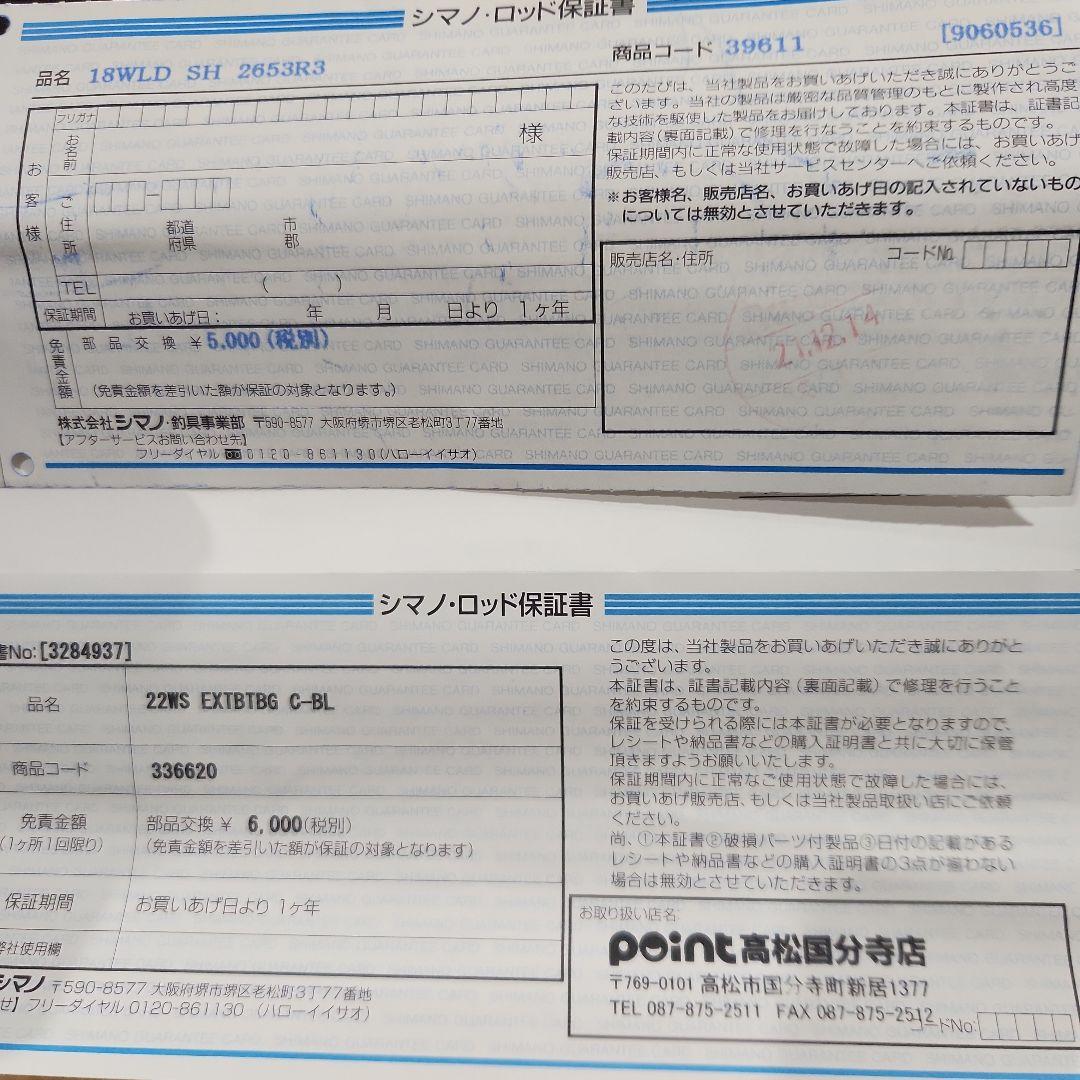 シマノ・ロッド保証書
品名 18WLD SH 2653R3
商品コード 39611 [9060536]
フリガナ
お名前 様
お客様
ご住所 都道府県 市郡
TEL ( )
保証期間 お買いあげ日: 年 月 日より 1ヶ年
免責金額 部品交換 ¥5,000(税別)
(免責金額を差引いた額が保証の対象となります。)
株式会社シマノ・釣具事業部 〒590-8577 大阪府堺市堺区老松町3丁77番地
【アフターサービスお問い合わせ先】
フリーダイヤル 0120-861130(ハローイイサオ)
このたびは、当社製品をお買いあげいただき誠にありがとうご
ざいます。当社の製品は厳密な品質管理のもとに製作され高度
な技術を駆使した製品をお届けしております。本証書は、証書記
載内容(裏面記載)で修理を行なうことを約束するものです。
保証期間内に正常な使用状態で故障した場合には、お買いあげ
販売店、もしくは当社サービスセンターへご依頼ください。
※お客様名、販売店名、お買いあげ日の記入されていないもの
については無効とさせていただきます。
販売店名・住所 コードNo.
21.12.14
シマノ・ロッド保証書
書No:[3284937]
品名 22WS EXTBTBG C-BL
商品コード 336620
免責金額 部品交換¥ 6,000(税別)
(1ヶ所1回限り) (免責金額を差引いた額が保証の対象となります)
保証期間 お買いあげ日より 1ヶ年
弊社使用欄
シマノ 〒590-8577 大阪府堺市堺区老松町3丁77番地
せ】フリーダイヤル 0120-861130 (ハローイイサオ)
この度は、当社製品をお買いあげいただき誠にありがと
うございます。
本証書は、証書記載内容(裏面記載)で修理を行うこと
を約束するものです。
保証を受けられる際には本証書が必要となりますので、
レシートや納品書などの購入証明書と共に大切に保管
頂きますようお願いいたします。
保証期間内に正常なご使用状態で故障した場合には、
お買いあげ販売店、もしくは当社製品取扱い店にご依頼
ください。
尚、①本証書②破損パーツ付製品③日付の記載がある
レシートや納品書などの購入証明書の3点が揃わない
場合は無効とさせていただきます。
お取り扱い店名:
point高松国分寺店
〒769-0101 高松市国分寺町新居1377
TEL 087-875-2511 FAX 087-875-2512
コードNo: